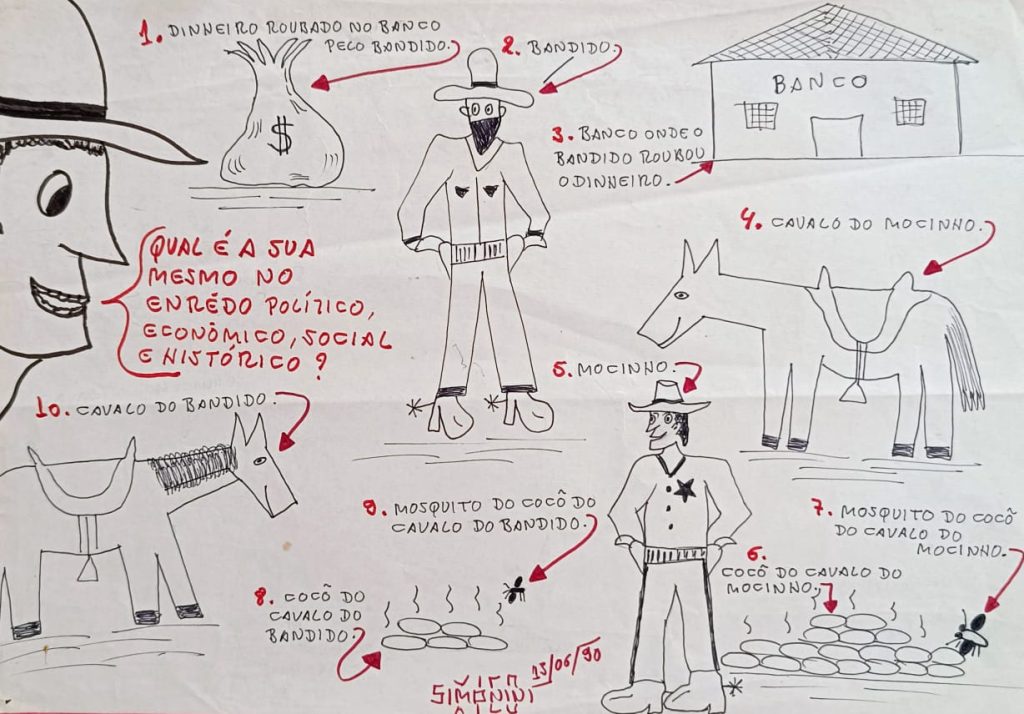 1. DINHEIRO ROUBADO NO BANCO
PELO BANDIDO.
$
2. BANDIDO.
BANCO
3. BANCO ONDE O
BANDIDO ROUBOU
O DINHEIRO.
4. CAVALO DO MOCINHO.
QUAL É A SUA
MESMO NO
ENRÊDO POLÍTICO,
ECONÔMICO, SOCIAL
E HISTÓRICO?
5. MOCINHO.
10. CAVALO DO BANDIDO.
9. MOSQUITO DO COCÔ DO
CAVALO DO BANDIDO.
7. MOSQUITO DO COCÔ
DO CAVALO DO
MOCINHO.
6.
COCÔ DO CAVALO DO
MOCINHO.
8. COCÔ DO
CAVALO DO
BANDIDO.
SIMONINI
13/06/90